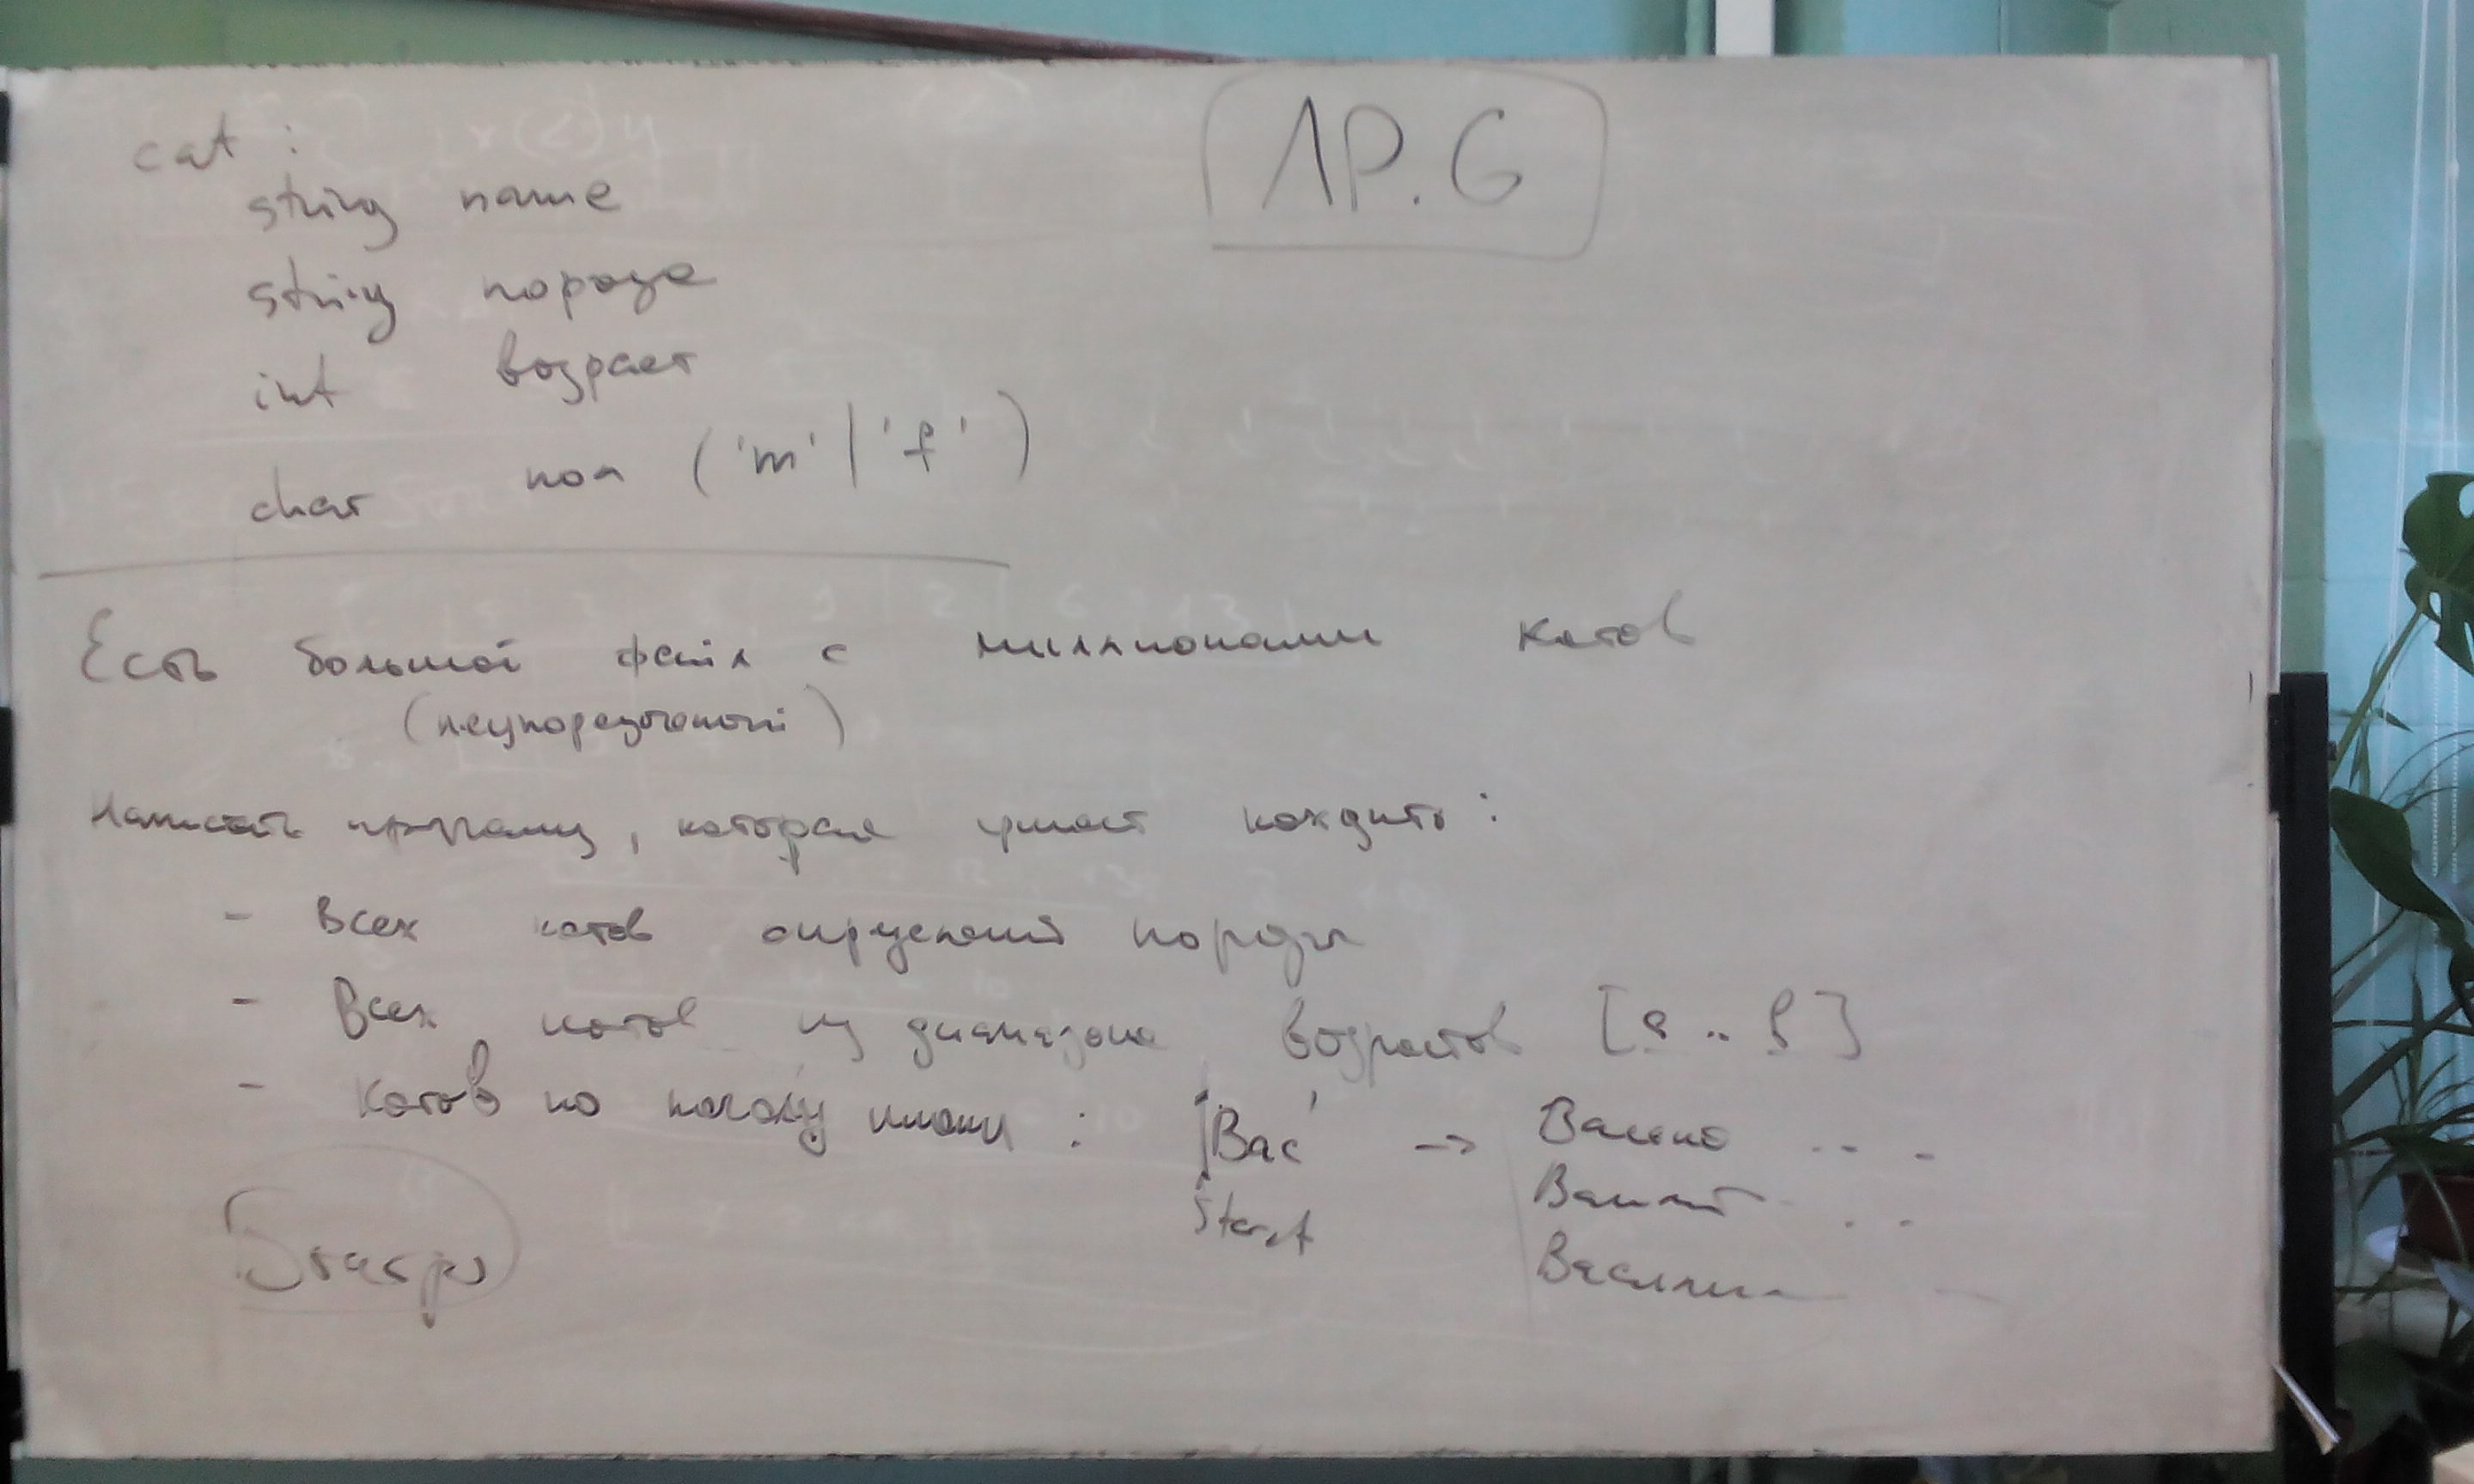 ЛР.6
cat :
string name
string порода
int возраст
char пол ('m' | 'f')
Есть большой файл с миллионами котов
(неупорядоченный)
Написать программу, которая умеет находить :
- Всех котов опр. породы
- Всех котов из диапазона возрастов [a .. b]
- Котов по началу имени : 'Вас' →
start
Быстро